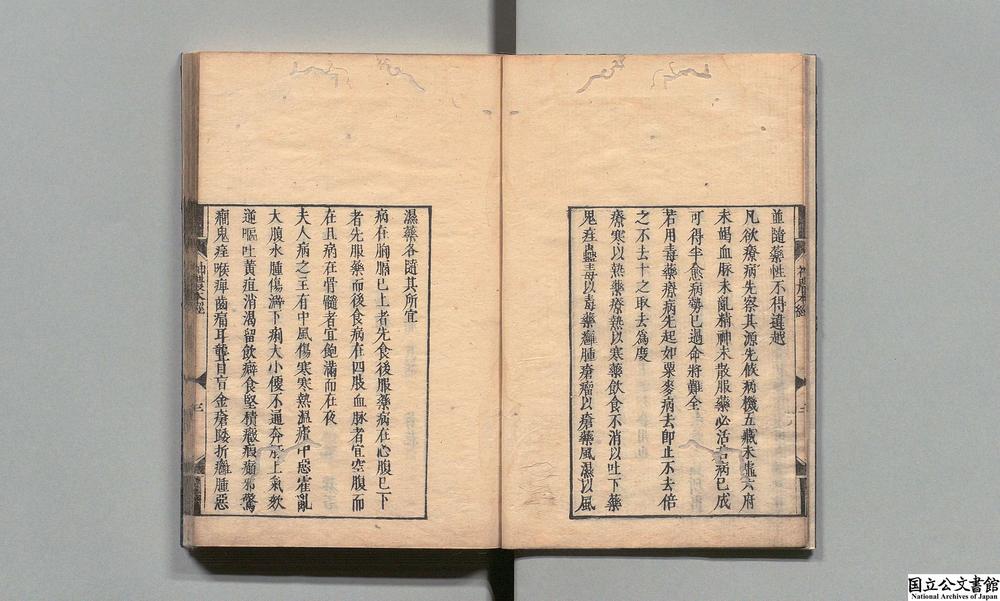 並隨藥性不得違越
凡欲療病先察其源先候病機五藏未虛六府
未竭血脉未亂精神未散服藥必活若病已成
可得半愈病勢已過命將難全
若用毒藥療病先起如粟麥病去卽止不去倍
之不去十之取去爲度
療寒以熱藥療熱以寒藥飮食不消以吐下藥
鬼疰蠱毒以毒藥癰腫瘡瘤以瘡藥風濕以風
濕藥各隨其所宜
病在胸膈已上者先食後服藥病在心腹已下
者先服藥而後食病在四肢血脉者宜空腹而
在旦病在骨髓者宜飽滿而在夜
夫大病之主有中風傷寒寒熱溫瘧中惡霍亂
大腹水腫腸澼下痢大小便不通奔㹠上氣欬
逆嘔吐黃疸消渴留飮癖食堅積癥瘕癲邪驚
癎鬼疰喉痺齒痛耳聾目盲金瘡踒折癰腫惡
神農本經
三
国立公文書館
National Archives of Japan